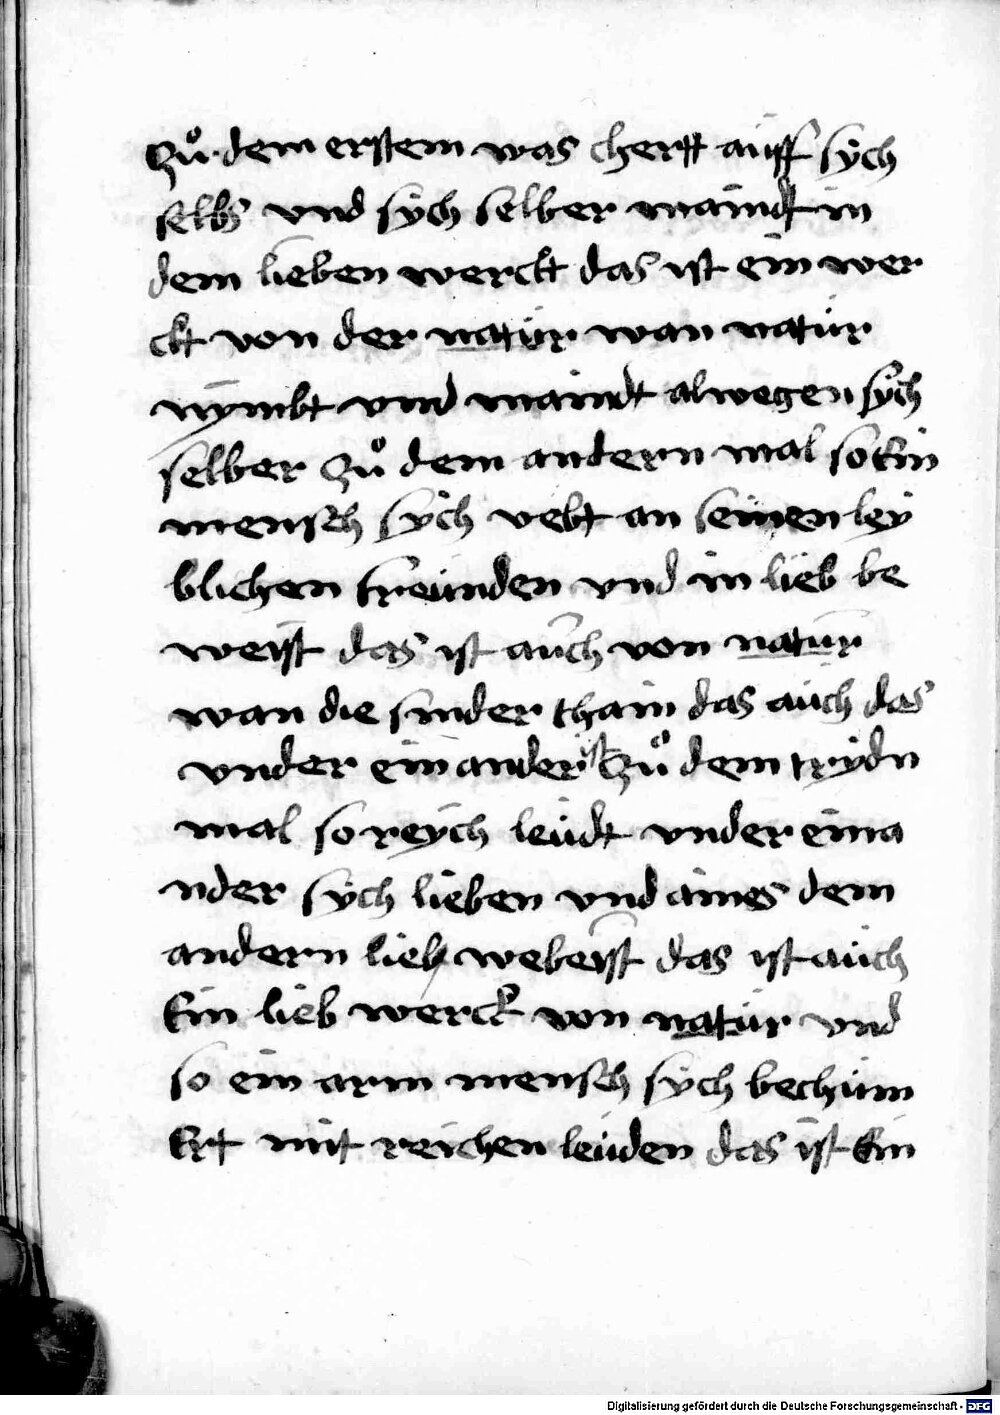 Zuͦ dem erstem was chertt auff sych
selbs vnd sych selber maindt in
dem lieben werckt das ist ein wer
ckt von der natur wan natur
nymbt vnd maindt alwegen sych
selber zuͦ dem andern mal so Ein
mensch sych vebt an seinen ley
blichen freunden vnd in lieb be
weist das ist auch von natur
wan die sunder thain das auch das
vnder ein ander ist Zuͦ dem trydn
mal so reych leudt vnder eina
nder sych lieben vnd aines dem
andern lieb webeist das ist auch
Ein lieb werck von natur vnd
so ein arm mensch sych bechum
Ert mit reichen leuden das ist Ein
Digitalisierung gefördert durch die Deutsche Forschungsgemeinschaft - DFG